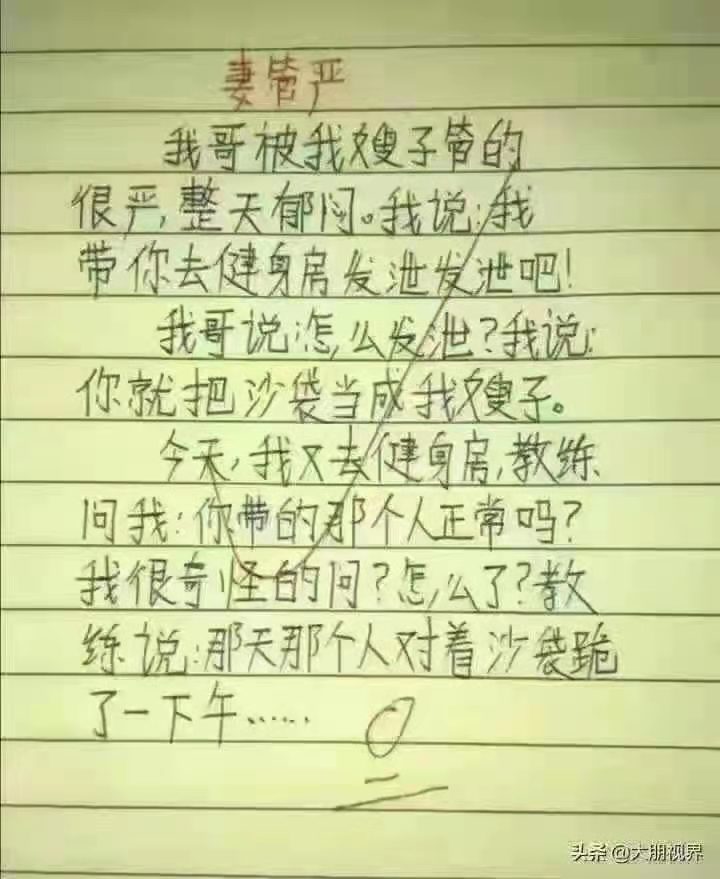 妻管严
我哥被我嫂子管的
很严,整天郁闷。我说:我
带你去健身房发泄发泄吧!
我哥说:怎么发泄?我说:
你就把沙袋当成我嫂子。
今天,我又去健身房,教练
问我:你带的那个人正常吗?
我很奇怪的问?怎么了?教
练说:那天那个人对着沙袋跪
了一下午……
0
头条 @大朋视界